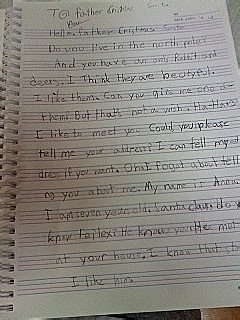 To father
Hello, father Christmas
Do you live in the north pole?
And you have an own
deers. I Think they are beutyful.
I like them. Can you give me one of
them? But that's not a wish. Ha Ha Ha
I like to meet you Could you please
tell me your address? I can tell my ad
dress if you want. Oh I fogot about telli
ng you about me. My name is Anna.
I am seven years old. Santa claus. do you
know He knows you. He
at your house. I know that
I like him.